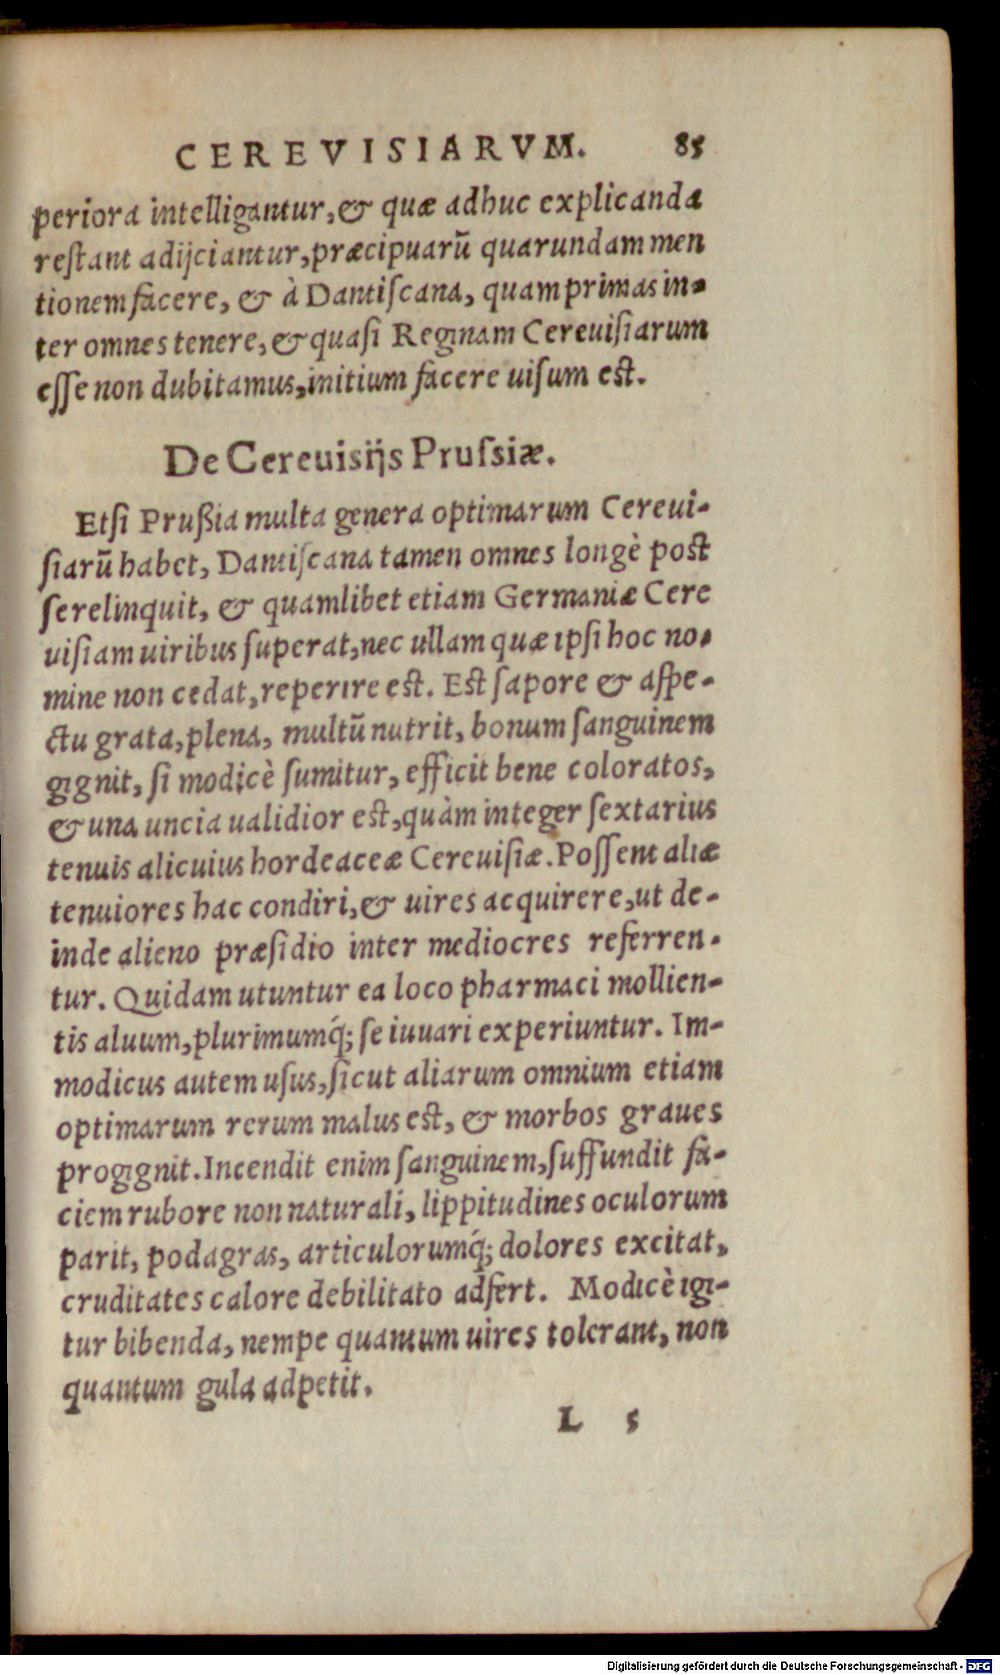 CEREVISIARVM. 85
periora intelligantur, & quæ adhuc explicanda
restant adijciantur, præcipuarũ quarundam men
tionem facere, & à Dantiscana, quam primas in-
ter omnes tenere, & quasi Reginam Cereuisiarum
esse non dubitamus, initium facere uisum est.
De Cereuisijs Prussiæ.
Etsi Prußia multa genera optimarum Cereui-
siarũ habet, Dantiscana tamen omnes longè post
se relinquit, & quamlibet etiam Germaniæ Cere
uisiam uiribus superat, nec ullam quæ ipsi hoc no-
mine non cedat, reperire est. Est sapore & aspe-
ctu grata, plena, multũ nutrit, bonum sanguinem
gignit, si modicè sumitur, efficit bene coloratos,
& una uncia ualidior est, quàm integer sextarius
tenuis alicuius hordeaceæ Cereuisiæ. Possent aliæ
tenuiores hac condiri, & uires acquirere, ut de-
inde alieno præsidio inter mediocres referren-
tur. Quidam utuntur ea loco pharmaci mollien-
tis aluum, plurimumq́; se iuuari experiuntur. Im-
modicus autem usus, sicut aliarum omnium etiam
optimarum rerum malus est, & morbos graues
progignit. Incendit enim sanguinem, suffundit fa-
ciem rubore non naturali, lippitudines oculorum
parit, podagras, articulorumq́; dolores excitat,
cruditates calore debilitato adfert. Modicè igi-
tur bibenda, nempe quantum uires tolerant, non
quantum gula adpetit.
L 5
Digitalisierung gefördert durch die Deutsche Forschungsgemeinschaft - DFG